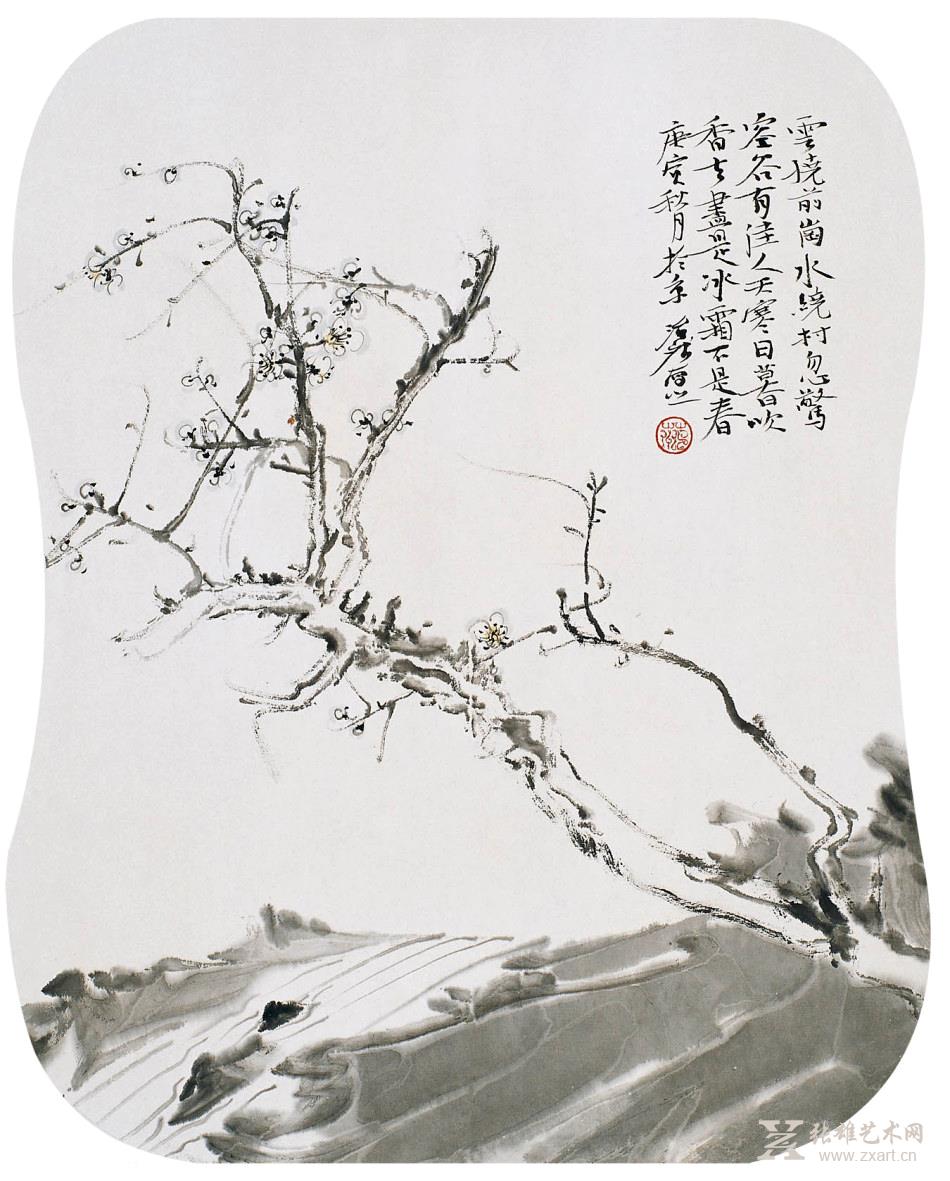 雲繞前崗水繞村忽驚
空谷有佳人天寒日暮吹
香去盡是冰霜不是春
庚寅秋月於京
张雄艺术网
www.zxart.cn